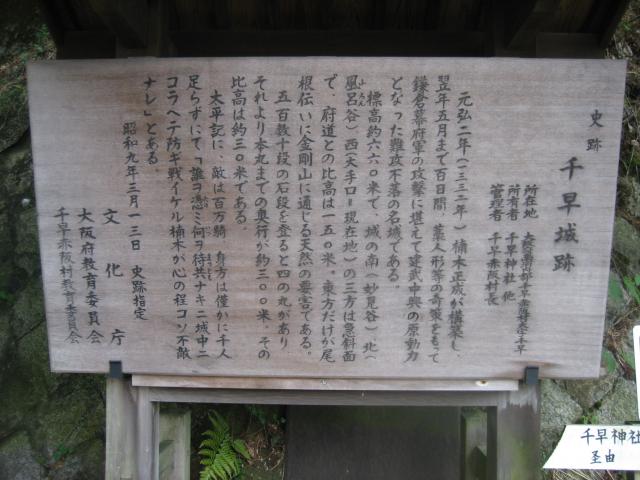 史跡 千早城跡
所在地 大阪府南河内郡千早赤阪村大字千早
所有者 千早神社 他
管理者 千早赤阪村長
元弘二年(一三三二年)楠木正成が構築し、
翌年五月まで百日間、藁人形等の奇策をもって
鎌倉幕府軍の攻撃に堪えて建武中興の原動力
となった難攻不落の名城である。
標高約六六〇米で、城の南(妙見谷)北(
風呂谷)西(大手口=現在地)の三方は急斜面
で、府道との比高は一五〇米。東方だけが尾
根伝いに金剛山に通じる天然の要害である。
五百数十段の石段を登ると四の丸があり
それより本丸までの奥行が約三〇〇米、その
比高は約三〇米である。
太平記に、敵は百万騎、身方は僅かに千人
足らずにて「誰ヲ憑ミ何ヲ待共ナキニ城中ニ
コラヘテ防ギ戦イケル楠木が心の程コソ不敵
ナレ」とある。
昭和九年三月一三日 史跡指定
文化庁
大阪府教育委員会
千早赤阪村教育委員会
千早神社
至由